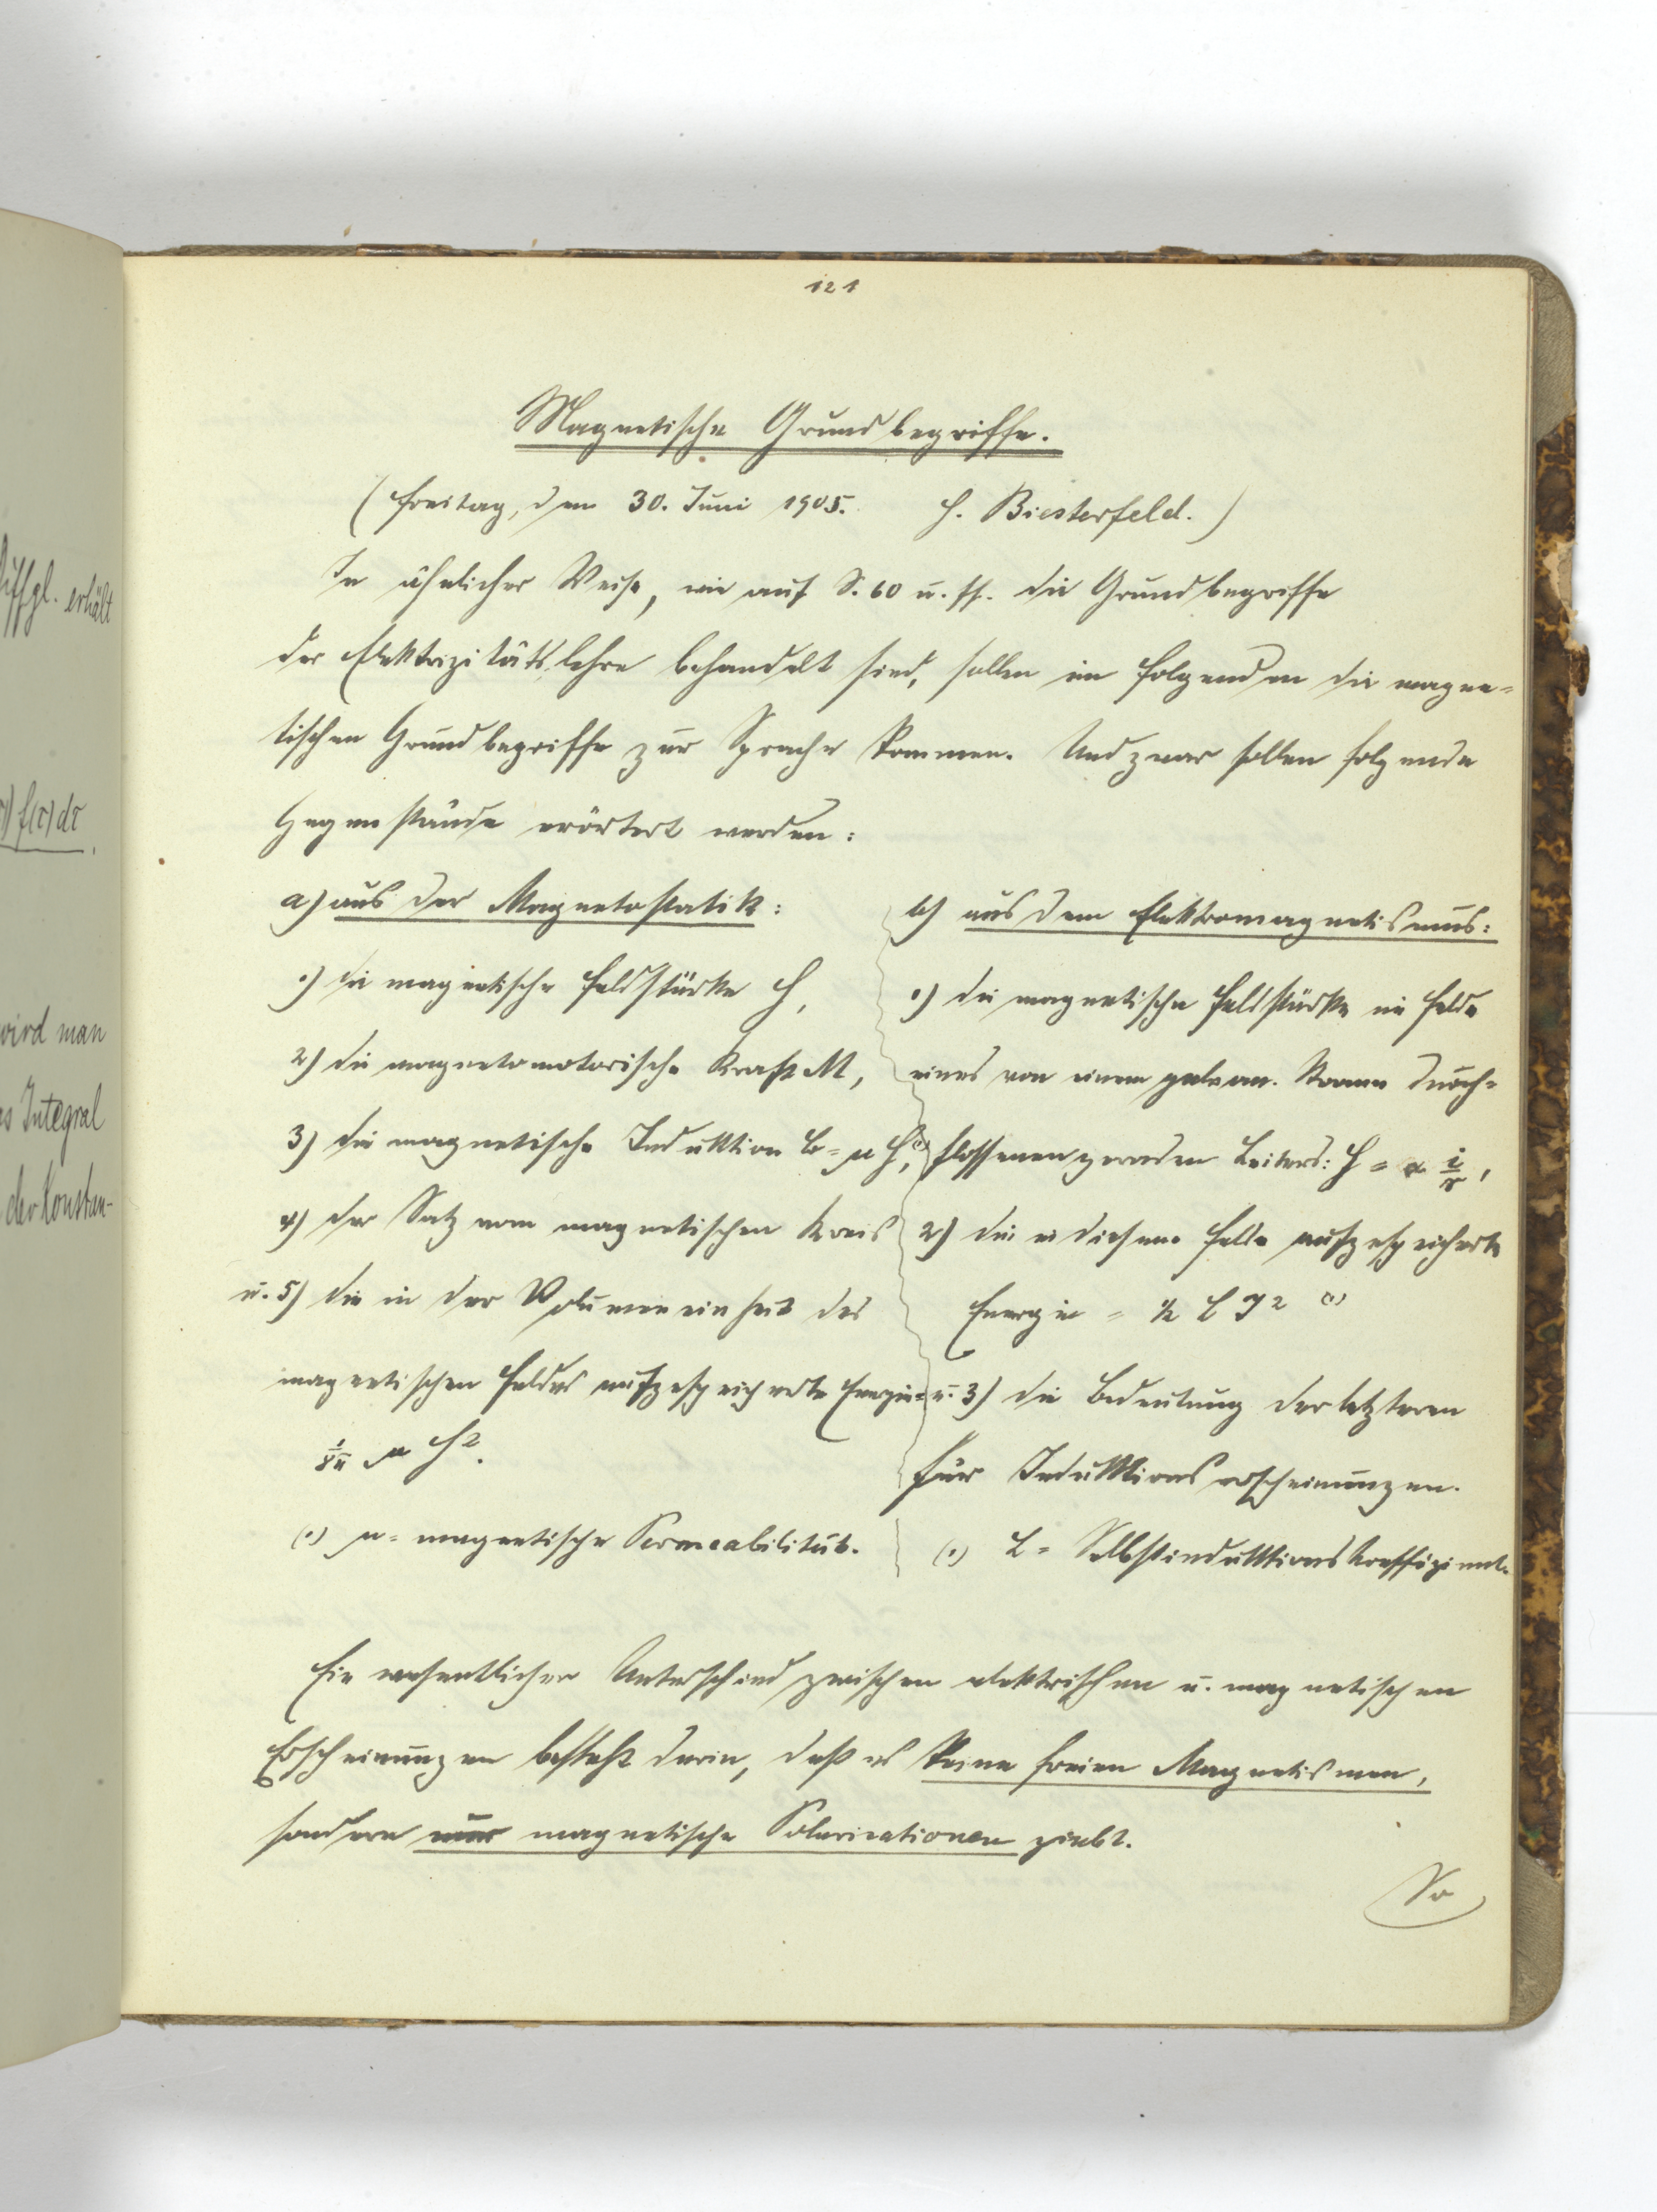 121
Magnetische Grundbegriffe.
(Freitag, den 30. Juni 1905. H. Biesterfeld.)
In ähnlicher Weise, wie auf S. 60 u. ff. die Grundbegriffe
der Elektrizitätslehre behandelt sind, sollen im folgenden die magne-
tischen Grundbegriffe zur Sprache kommen. Und zwar sollen folgende
Gegenstände erörtert werden:
a) aus der Magnetostatik:
1) die magnetische Feldstärke H,
2) die magnetomotorische Kraft M,
3) die magnetische Induktion b = μ H, (1)
4) der Satz vom magnetischen Kreis
u. 5) die in der Volumeneinheit des
magnetischen Feldes aufgespeicherte Energie =
1/8π μ H².
(1) μ = magnetische Permeabilität.
b) aus dem Elektromagnetismus:
1) die magnetische Feldstärke im Felde
eines von einem galvan. Strome durch-
flossenen geraden Leiters: H = α i/r,
2) die in diesem Felde aufgespeicherte
Energie = ½ L J² (1)
u. 3) die Bedeutung der letzteren
für Induktionserscheinungen.
(1) L = Selbstinduktionskoeffizient.
Ein wesentlicher Unterschied zwischen elektrischen u. magnetischen
Erscheinungen besteht darin, daß es keine freien Magnetismen,
sondern nur magnetische Polarisationen giebt.
So
iffgl. erhält
f(τ)dτ
wird man
as Integral
der Konstan-